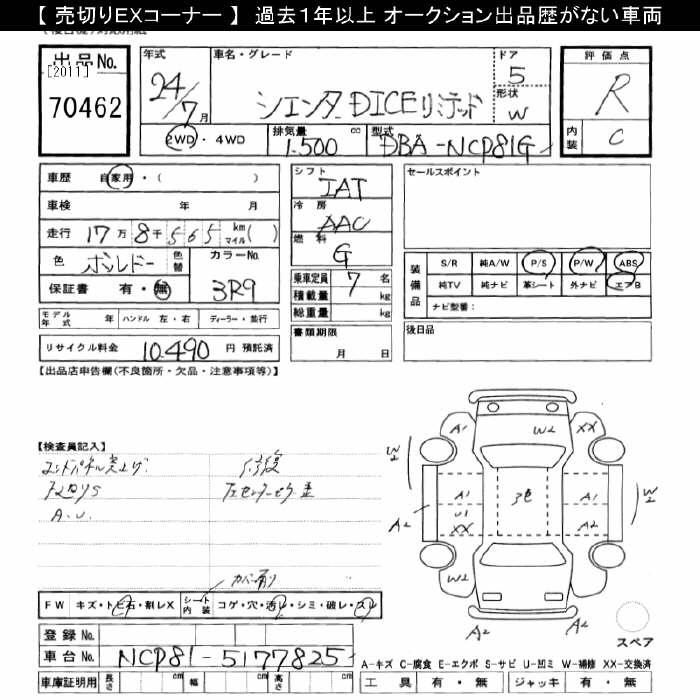 【 売切りＥＸコーナー 】 過去１年以上 オークション出品歴がない車両
出品No.
[2011]
70462
年式
24/7月
車名・グレード
シエンタ DICEリミテッド
ドア
5
形状
W
評価点
R
内装
C
2WD・4WD
排気量
1.500 cc
型式
DBA-NCP81G
車歴 自家用・( )
車検 年 月
走行 17万8千565 km マイル( )
色 ボルドー 色替
カラーNo.
3R9
保証書 有・無
モデル年式 年 ハンドル 左・右 ディーラー・並行
リサイクル料金 10.490 円 預託済
シフト
IAT
冷房
AAC
燃料
G
乗車定員 7 名
積載量 kg
総重量 kg
書類期限
月 日
セールスポイント
装備品
S/R 純A/W P/S P/W ABS
純TV 純ナビ 革シート 外ナビ エアB
ナビ型番：
後日品
【出品店申告欄(不良箇所・欠品・注意事項等)】
【検査員記入】
A.U.
修復
A1 W2 XX
W2
A1 3色 A1
U1
XX A2
A2
W2
W2
A2 A2
スペア
FW キズ・トビ石・割レX シート内装 コゲ・穴・汚レ・シミ・破レ・スレ
登録No.
車台No. NCP81-5177825
車庫証明用 長さ cm 幅 cm 高さ cm
A-キズ C-腐食 E-エクボ S-サビ U-凹ミ W-補修 XX-交換済
工具 有・無 ジャッキ 有・無